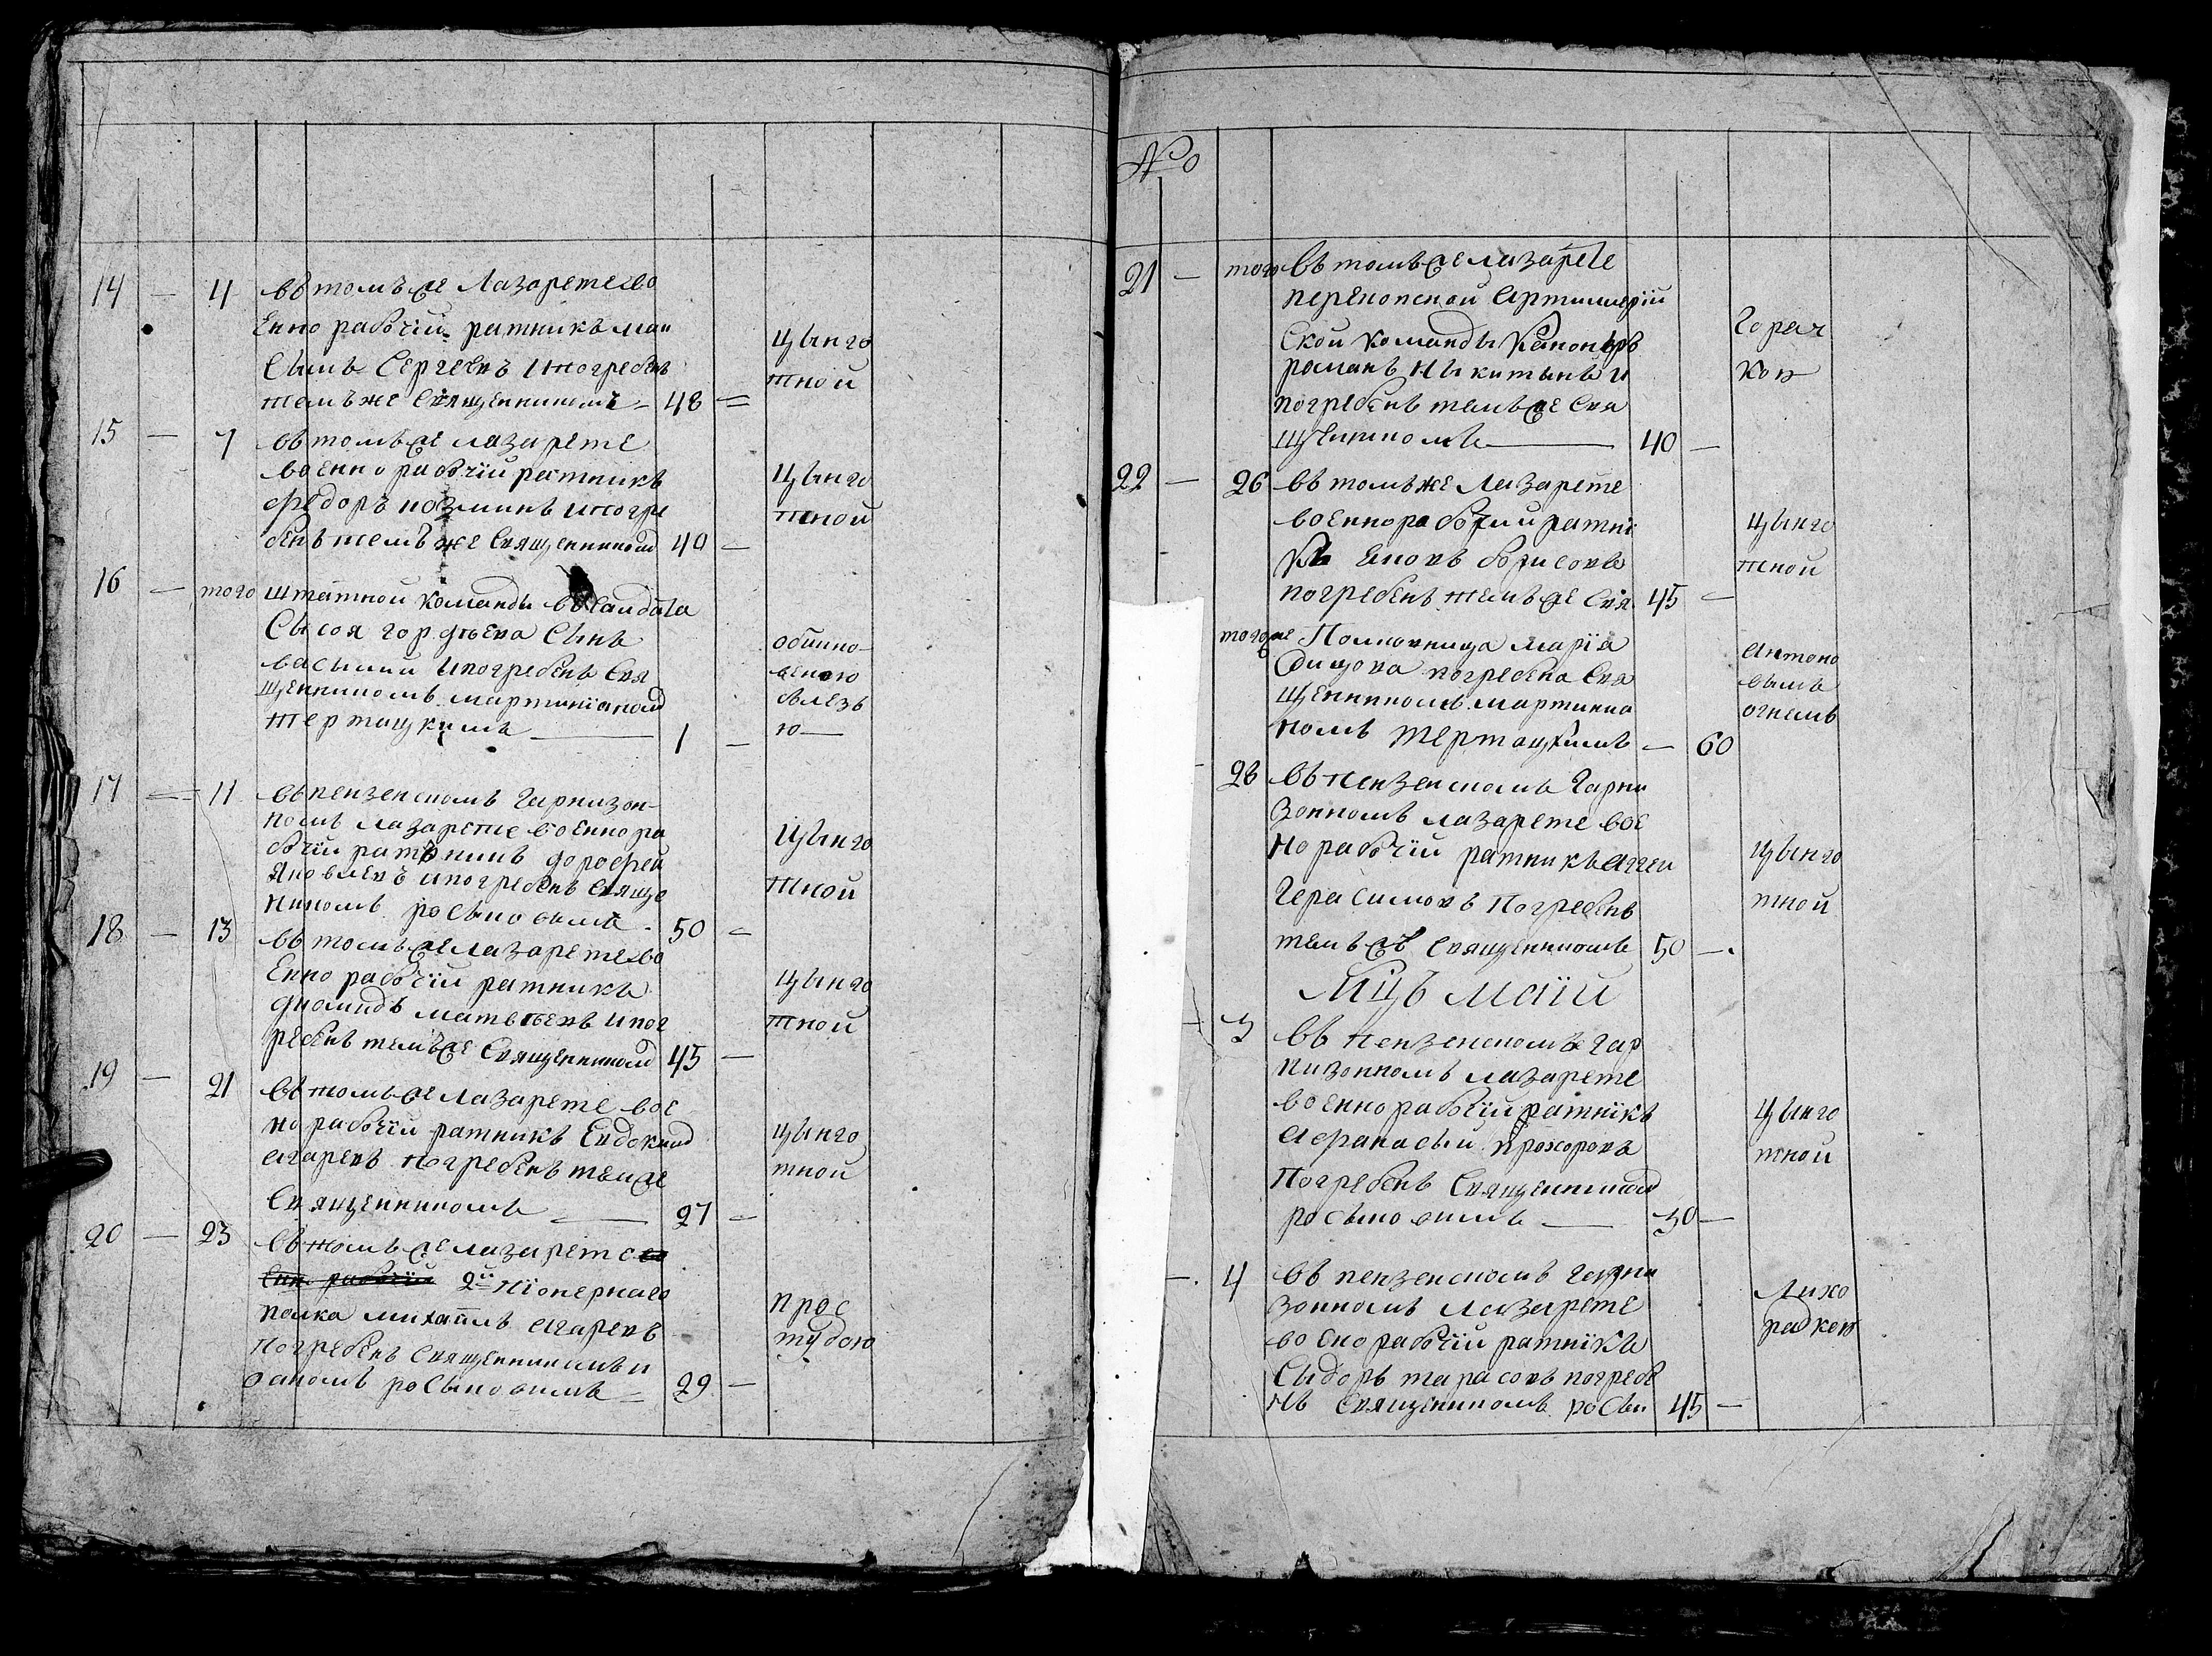 14 — 4 въ томъ же Лазарете во
енно рабочiй ратникъ Мак
симъ Сергеевъ и погребенъ
темъ же Священникомъ — 48 =
цынго
тной
15 — 7 въ томъ же лазарете
военно рабочiй ратникъ
Федоръ Козминъ и погре
бенъ темъ же Священникомъ 40 —
цынго
тной
16 — того штатной команды салдата
Сысоя Гордѣева Сынъ
василий и погребенъ Свя
щенникомъ мартинiаномъ
Тертацкимъ — 1 —
обыкно
веною
болезь
ю —
17 — 11 въ пензенскомъ Гарнизон
номъ лазарете военно ра
бочiй ратникъ дорофей
Яковлевъ и погребенъ Свяще
никомъ росляковымъ 50 —
цынго
тной
18 — 13 въ томъ же лазарете во
енно рабочiй ратникъ
диомидъ матвѣевъ и пог
ребенъ темъ же Священникомъ 45 —
цынго
тной
19 — 21 въ томъ же лазарете вое
но рабочiй ратникъ Евдокимъ
агаревъ погребенъ тем же
Священникомъ — 27 —
цынго
тной
20 — 23 въ томъ же лазарете во
енн рабочiй 2й Пiонернаго
полка михаилъ агаревъ
погребенъ Священникомъ и
оаномъ — 29 —
прос
тудою
No
21 — того въ томъ же лазарете
перекопской Артиллерiй
Ской команды Канонеръ
романъ Никитинъ и
погребенъ темъ же Свя
щенникомъ — 40 —
Горяч
кою
22 — 26 въ томъ же Лазарете
военно рабочiй ратни
къ борисовъ
погребенъ темъ же Свя 45 —
цынго
тной
того же Полковница марiя
погребена Свя
щенникомъ мартиниа
номъ Тертацкимъ — 60
антоно
вымъ
огнемъ
28 въ пензенскомъ Гарни
зонномъ лазарете вое
но рабочiй ратникъ Аггей
Герасимовъ Погребенъ
темъ же Священникомъ 50 —
цынго
тной
Мцъ Маiй
— 3 въ пензенскомъ Гар
низонномъ лазарете
военно рабочiй ратникъ
Афанасiй Прохоровъ
Погребенъ Священникомъ
— 30 —
цынго
тной
— 4 въ пензенскомъ Гарни
зонномъ Лазарете
воено рабочiй ратникъ
Сидоръ тарасовъ погребе
нъ Священникомъ 45 —
Лихо
радкою